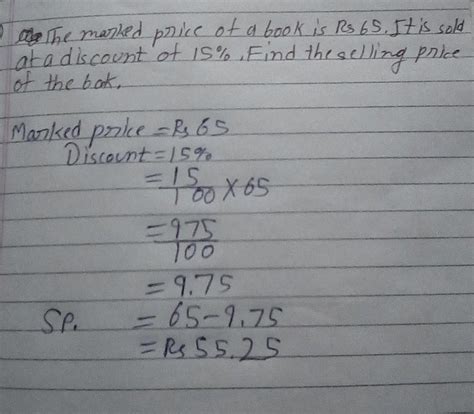 The marked price of a book is Rs 65. It is sold
at a discount of 15%. Find the selling price
of the bok.
Marked price = Rs 65
Discount = 15%
= 15/100 × 65
= 975/100
= 9.75
SP. = 65 - 9.75
= Rs 55.25